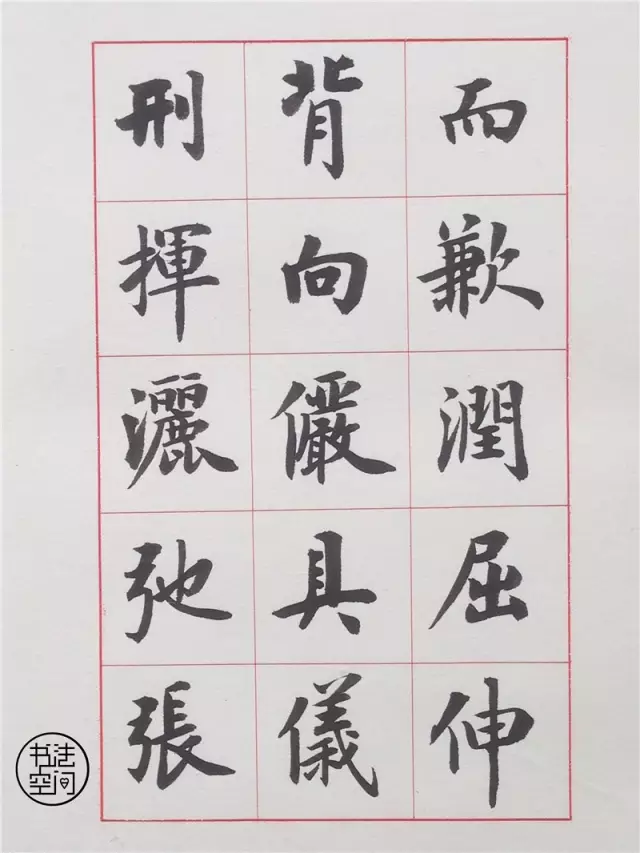 而歉潤屈伸
背向儼具儀
刑揮灑弛張
书法空间